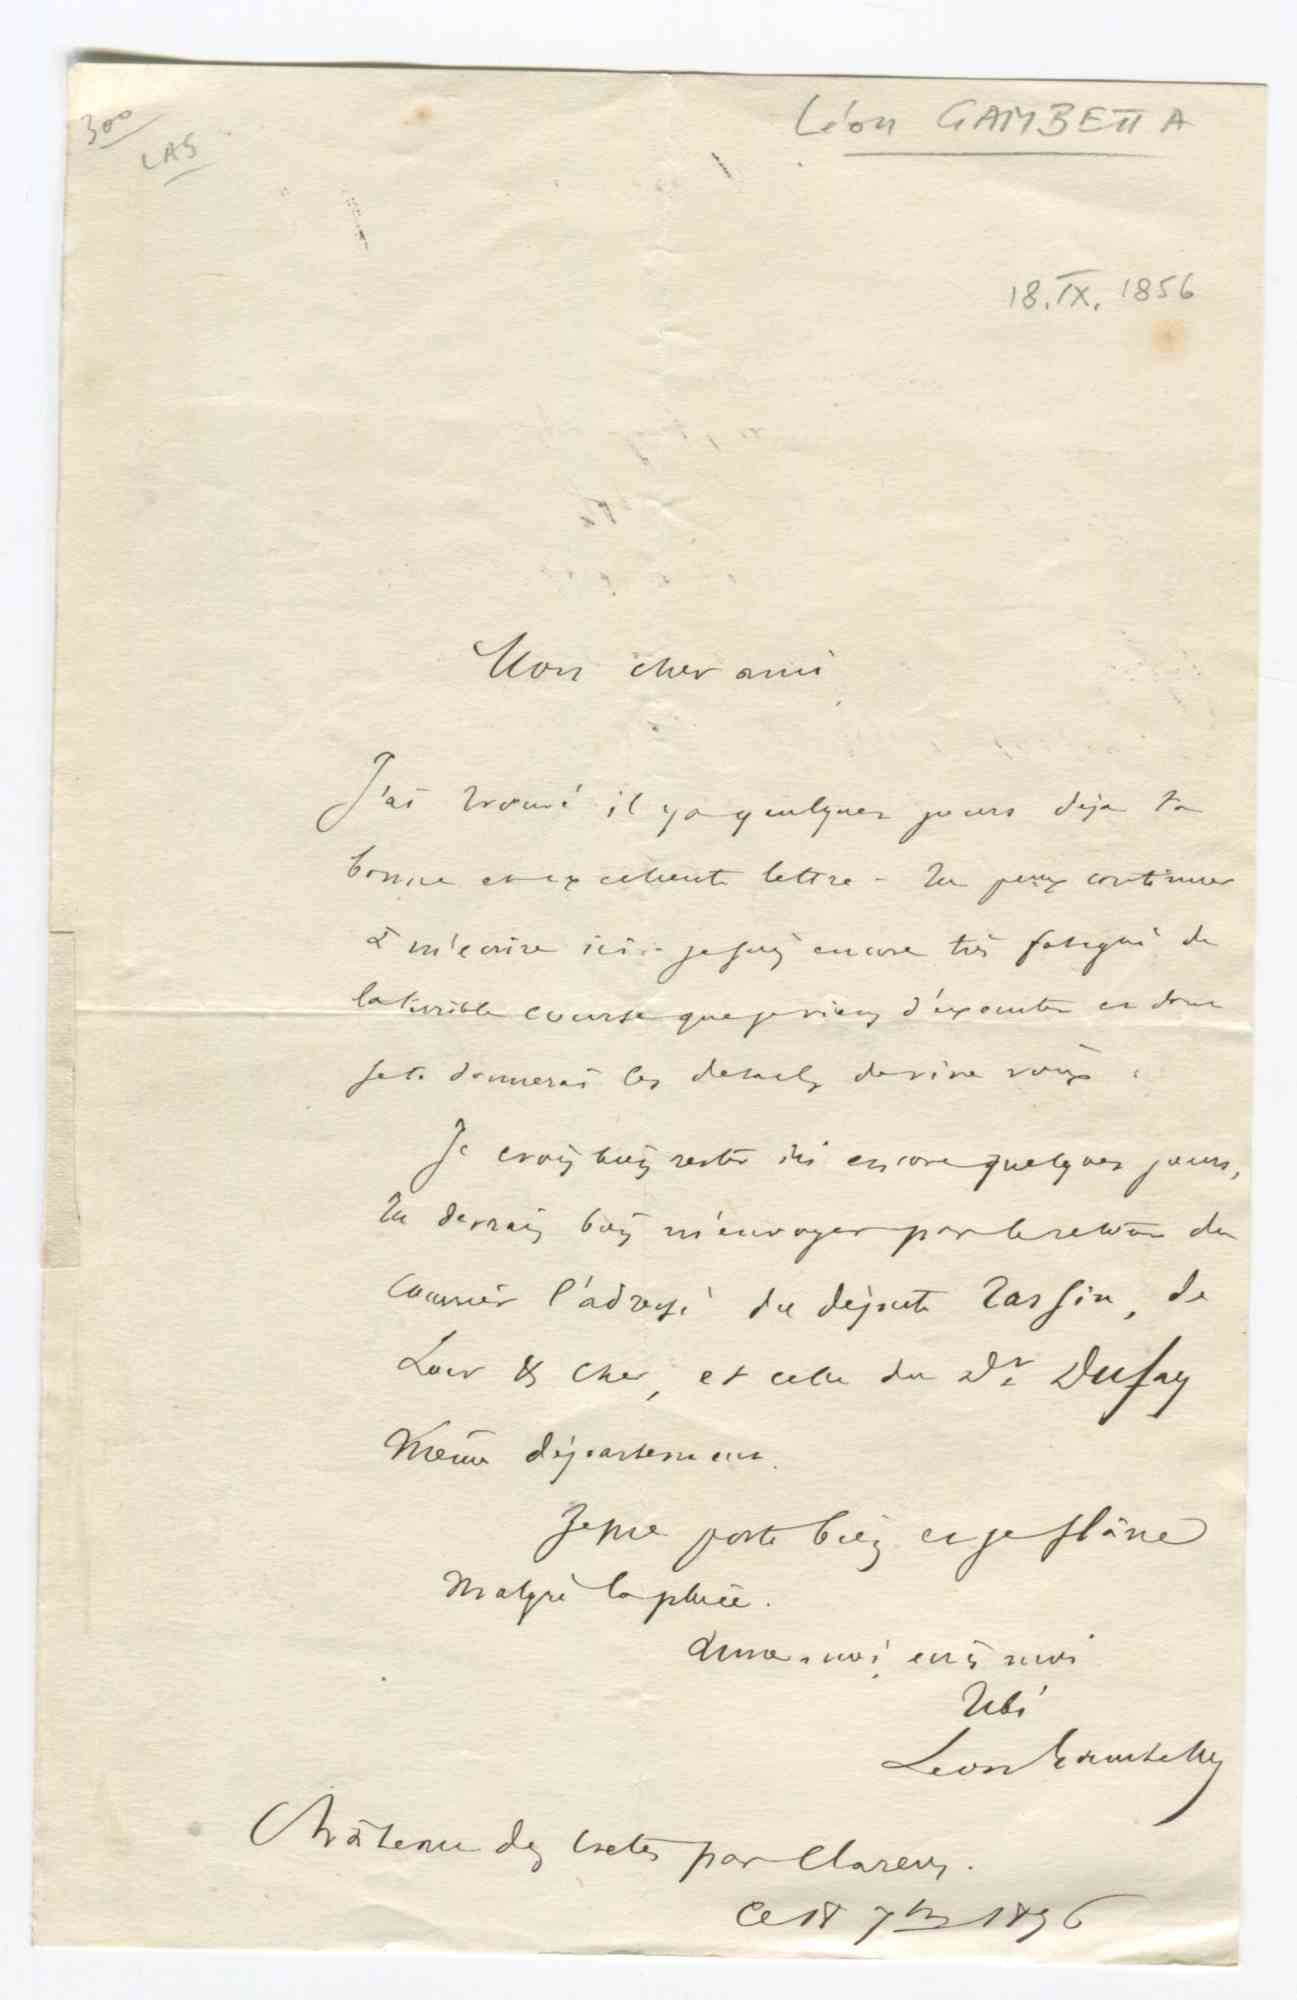 300
LAS
Léon GAMBETTA
18.IX.1856
Mon cher ami
J'ai trouvé il y a quelques jours déja ta
bonne et excellente lettre - Tu peux continuer
à m'écrire ici - je suis encore très fatigué de
la terrible course que je viens d'exécuter et dont
je te donnerai les details de vive voix.
Je crois bien rester ici encore quelques jours,
Tu devrais bien m'envoyer par le retour du
courrier l'adresse du député Tassin, de
Loir & Cher, et celle du Dr Dufay
même département.
Je me porte bien et je flâne
malgré la pluie.
Aime-moi, écris moi
Tibi
Leon Gambetta
Château des Crêtes par Clarens.
Ce 18 7bre 1876